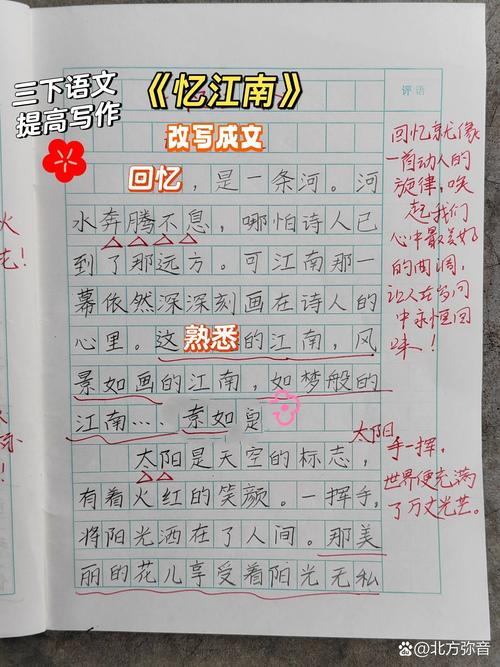 三下语文
提高写作
《忆江南》
改写成文
评语
回忆，是一条河。河
水奔腾不息，哪怕诗人已
到了那远方。可江南那一
幕依然深深刻画在诗人的
心里。这熟悉的江南，风
景如画的江南，如梦般的
江南……
太阳是天空的标志，
有着火红的笑颜。一挥手，
将阳光洒在了人间。那美
丽的花儿享受着阳光无私
回忆就像
一首动人的
旋律，唤
起我们
心中最美好
的曲调，
让人在岁月
中永恒回
味！
太阳
手一挥，
世界便充满
了万丈光芒。
北方弥音